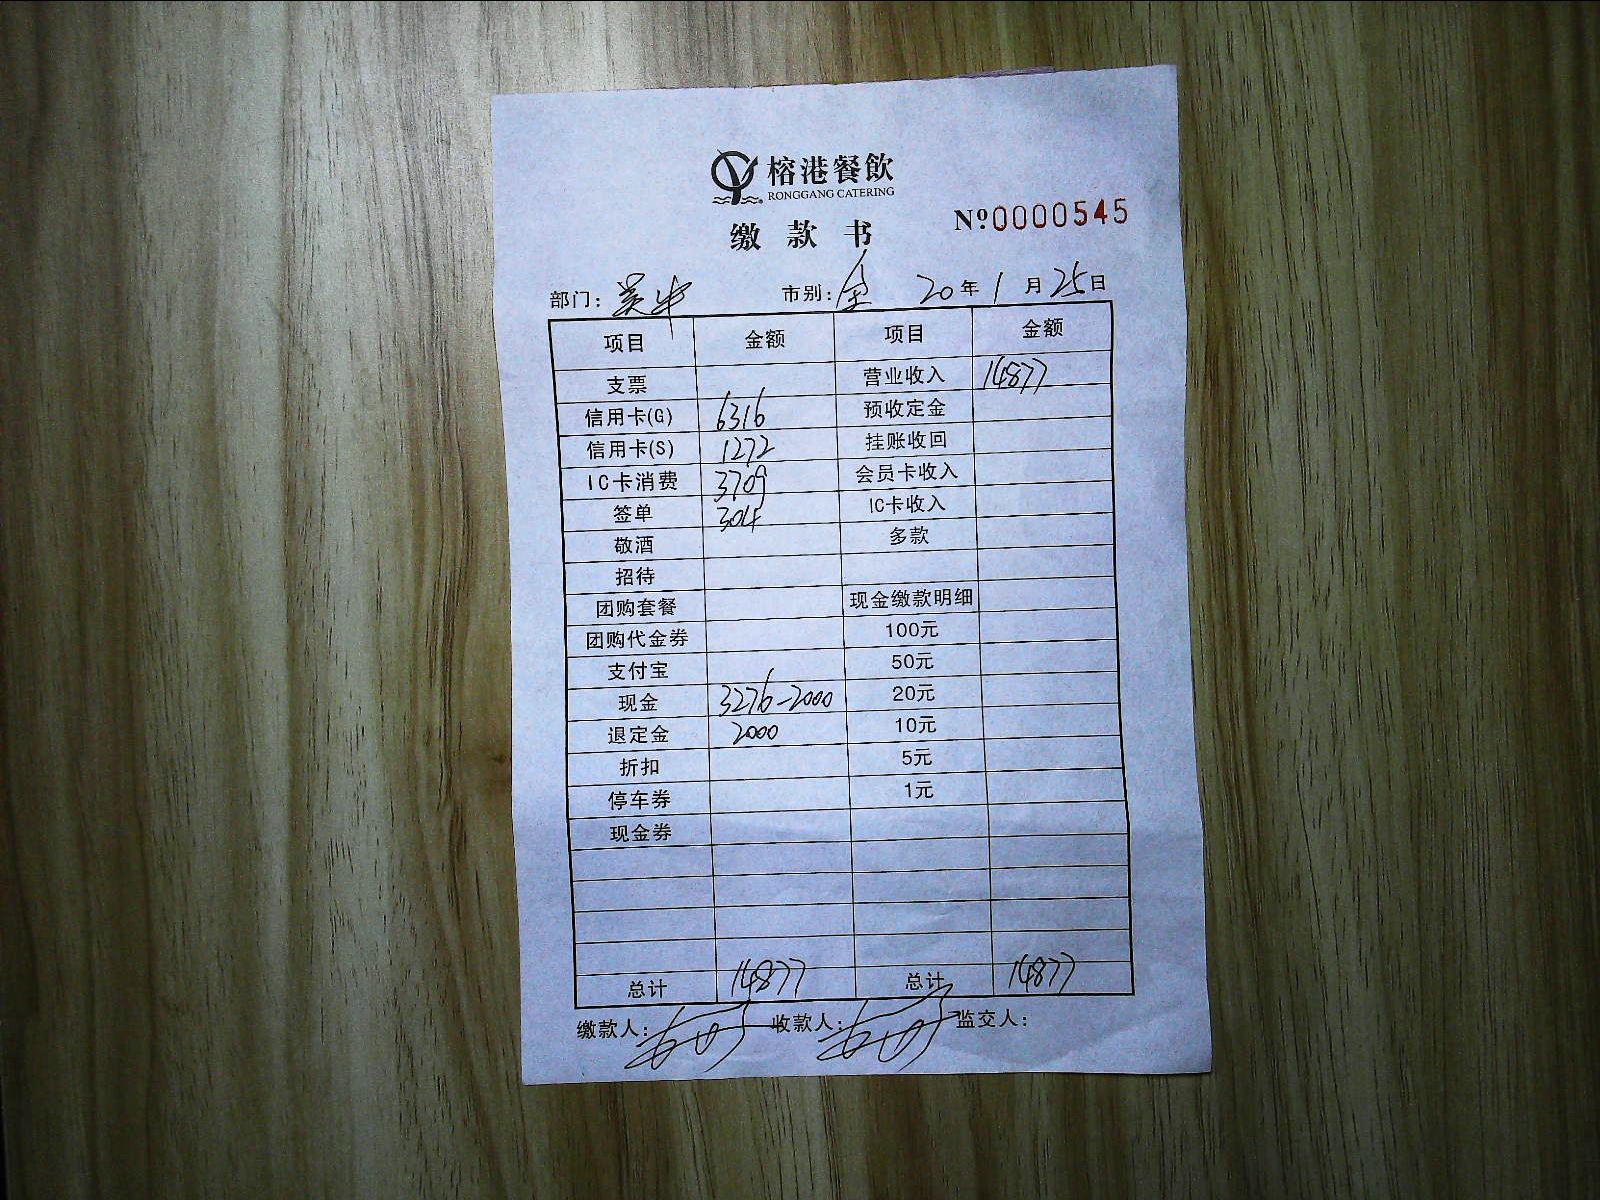 榕港餐飲
RONGGANG CATERING
缴款书
№0000545
部门： 市别：全 20年1月25日
项目 金额 项目 金额
支票 营业收入 14877
信用卡(G) 6316 预收定金
信用卡(S) 1272 挂账收回
IC卡消费 3709 会员卡收入
签单 304 IC卡收入
敬酒 多款
招待
团购套餐 现金缴款明细
团购代金券 100元
支付宝 50元
现金 3276-2000 20元
退定金 2000 10元
折扣 5元
停车券 1元
现金券
总计 14877 总计 14877
缴款人： 收款人： 监交人：